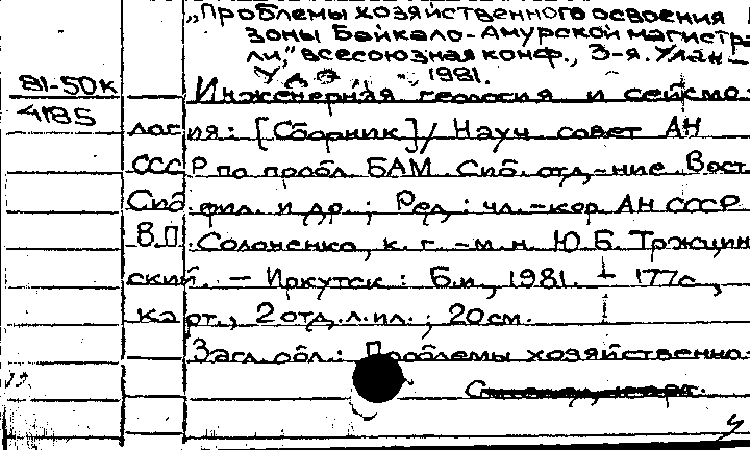 „Проблемы хозяйственного освоения
зоны Байкало-Амурской магистр-
ли," всесоюзная конф., 3-я. Улан-
Удэ, 1981.
81-50к
4185
Инженерная геология и сейсмо-
логия: [Сборник] / Науч. совет АН
СССР по пробл. БАМ. Сиб. отд-ние. Вост.
Сиб. фил. и др.; Ред.: чл.-кор. АН СССР
В.П. Солоненко, к. г.-м. н. Ю.Б. Тржцин-
ский. – Иркутск: Б.и., 1981. – 177с.,
карт., 2 отд. л. ил.; 20 см.
Загл. обл.: Проблемы хозяйственно-